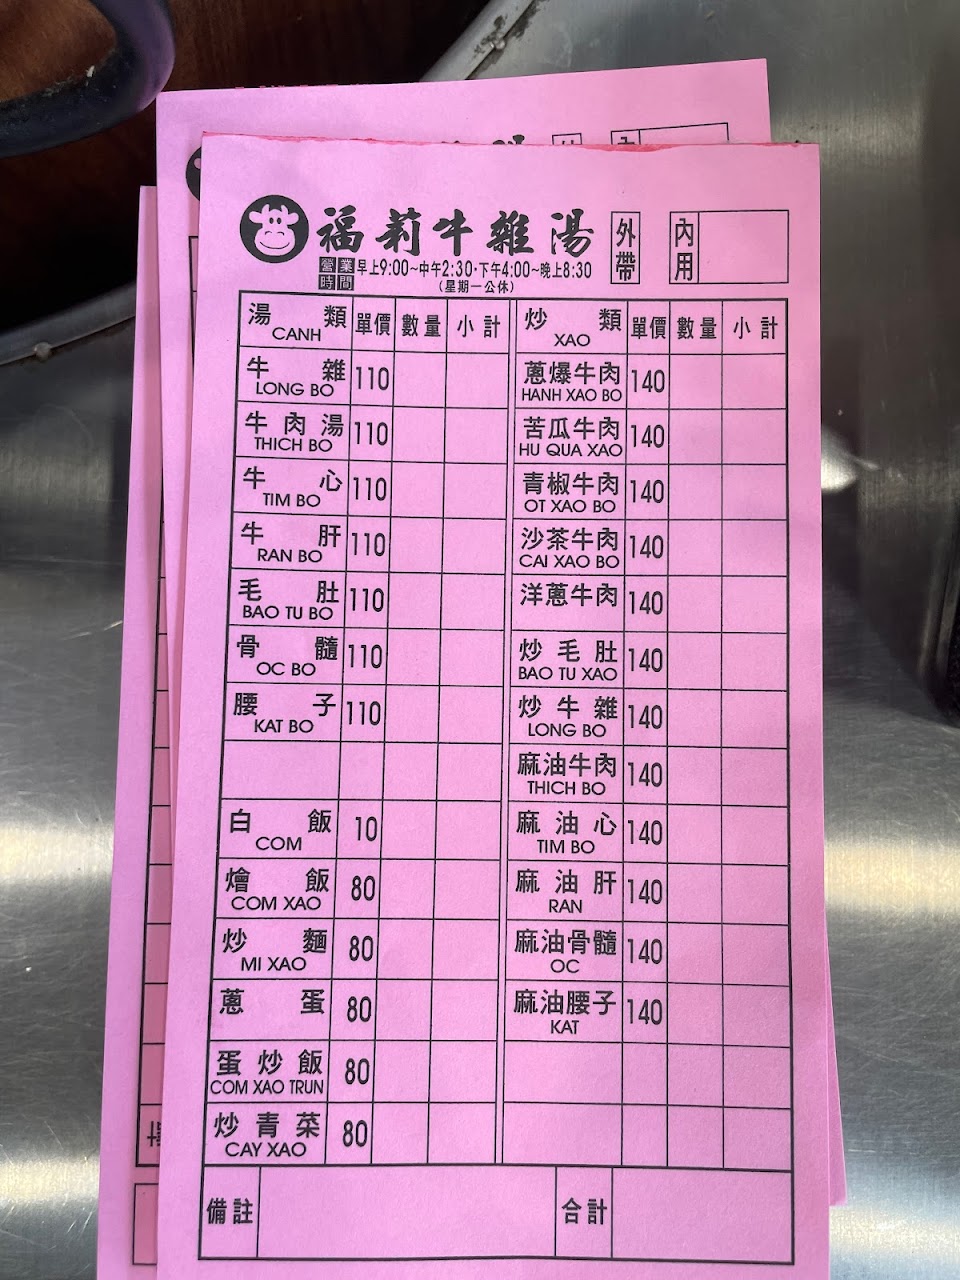 福莉牛雜湯
外帶
內用
營業時間 早上9:00~中午2:30·下午4:00~晚上8:30
(星期一公休)
湯類 CANH 單價 數量 小計
牛雜 LONG BO 110
牛肉湯 THICH BO 110
牛心 TIM BO 110
牛肝 RAN BO 110
毛肚 BAO TU BO 110
骨髓 OC BO 110
腰子 KAT BO 110
白飯 COM 10
燴飯 COM XAO 80
炒麵 MI XAO 80
蔥蛋 80
蛋炒飯 COM XAO TRUN 80
炒青菜 CAY XAO 80
炒類 XAO 單價 數量 小計
蔥爆牛肉 HANH XAO BO 140
苦瓜牛肉 HU QUA XAO 140
青椒牛肉 OT XAO BO 140
沙茶牛肉 CAI XAO BO 140
洋蔥牛肉 140
炒毛肚 BAO TU XAO 140
炒牛雜 LONG BO 140
麻油牛肉 THICH BO 140
麻油心 TIM BO 140
麻油肝 RAN 140
麻油骨髓 OC 140
麻油腰子 KAT 140
備註
合計